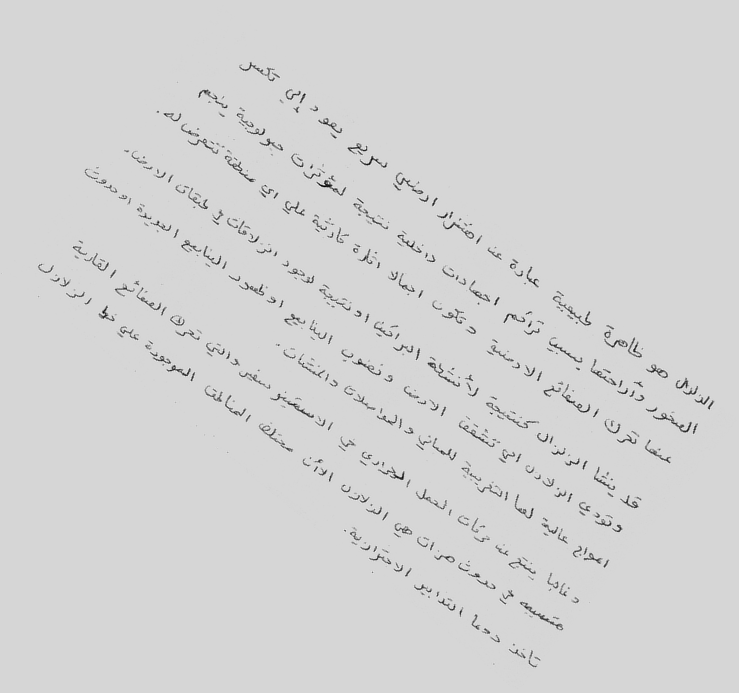 الزلازل هو ظاهرة طبيعية عبارة عن اهتزاز ارضي سريع يعود إلي تكسر
الصخور وأزاحتها بسبب تراكم اجهادات داخلية نتيجة لمؤثرات جيولوجية ينجم
عنها تحرك الصفائح الارضية وتكون اجمالا اثارة كارثية علي اي منطقة تتعرض له.
قد ينشا الزلزال كنتيجة لأنشطة البراكين او نتيجة لوجود انزلاقات في طبقات الارض.
وتودي الزلازل الي تشقق الارض ونضوب الينابيع او ظهور الينابيع الجديدة او حدوث
امواج عالية لها التخريبية للمباني والمواصلات والمنشات.
وغالبا ينتج عن حركات الحمل الحراري في الاسثينو سفير والتي تحرك الصفائح القارية
متسببه في حدوث هزات هي الزلازل الأن مختلف المناطق الموجودة علي خط الزلازل
تاخذ دوما التدابير الاحترازية.